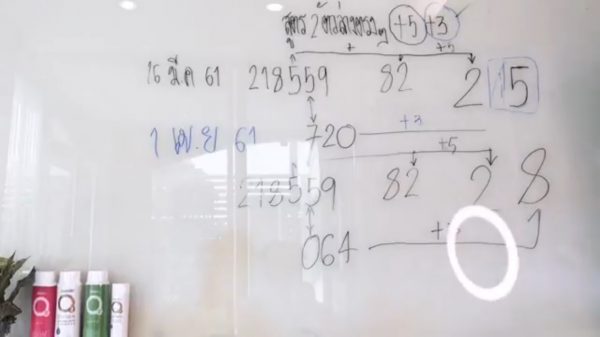 สูตร 2 ตัวล่างตรงๆ +5 +3
+ +5
16 มี.ค 61 218559 82 2 15
1 เม.ย 61 720 +3
+5
218559 82 2 8
064 1